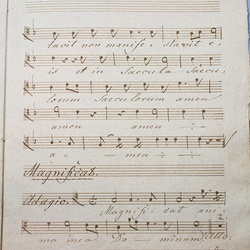 tavit non manife_stavit e_
is et in Saecula Saecu_
lorum Saeculorum amen
amen amen
a_men
Magnificat.
Adagio.
Magnifi_cat ani_
ma mea Do_minum